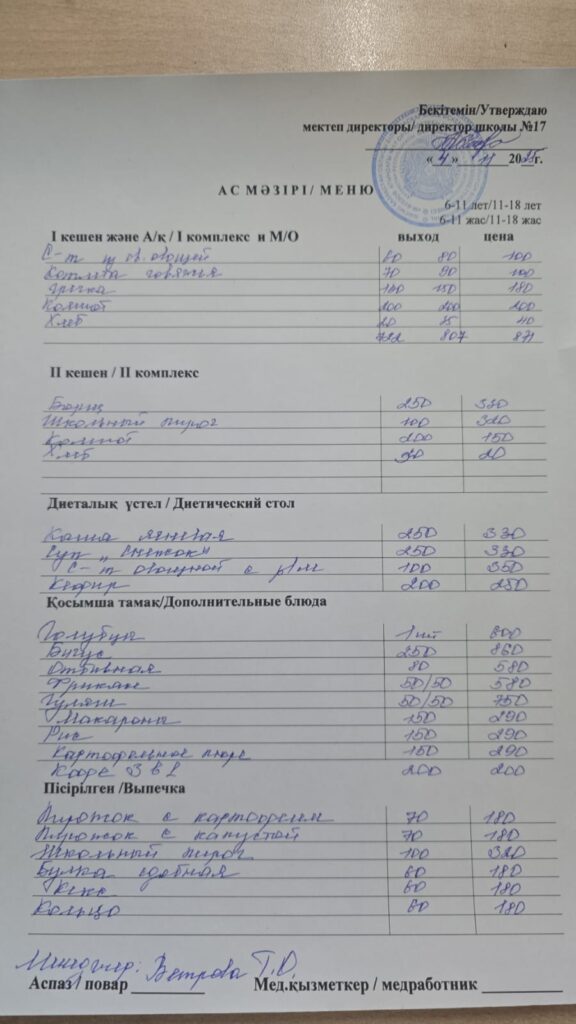 Бекітемін/Утверждаю
мектеп директоры/ директор школы №17
« 4 » 11 2025г.
АС МӘЗІРІ/ МЕНЮ
6-11 лет/11-18 лет
6-11 жас/11-18 жас
І кешен және А/қ / І комплекс и М/О выход цена
С-т из св. овощей 60 80 100
Котлета говяжья 70 90
Гречка 150 180
Компот 200 200 200
Хлеб 20 25 40
722 807 871
ІІ кешен / ІІ комплекс
Борщ 250 330
Школьный пирог 100 320
Компот 200 150
Хлеб 20
Диеталық үстел / Диетический стол
Каша 250 330
Суп „Снежок" 250 330
С-т овощной с р/м 100 350
Кефир 200 250
Қосымша тамақ/Дополнительные блюда
Голубцы 1 шт 600
Бигус 250 860
Отбивная 80 580
Фрикаж 50/50 580
Гуляш 50/50 750
Макароны 150 290
Рис 150 290
Картофельное пюре 150 290
Кофе 3 в 1 200 200
Пісірілген /Выпечка
Пирожок с картофелем 70 180
Пирожок с капустой 70 180
Школьный пирог 100 320
Булка сдобная 60 180
Кекс 60 180
Кольцо 60 180
Менеджер: Ветрова Т.О.
Аспаз / повар Мед.қызметкер / медработник